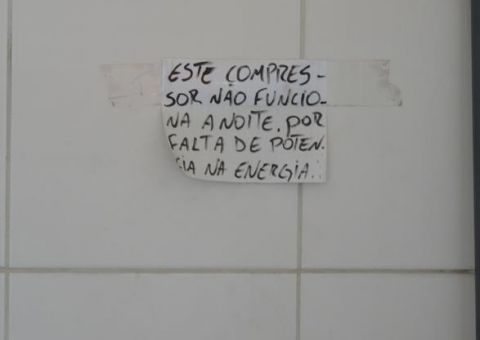 ESTE COMPRES-
SOR NÃO FUNCIO-
NA A NOITE. POR
FALTA DE POTEN.
CIA NA ENERGIA..